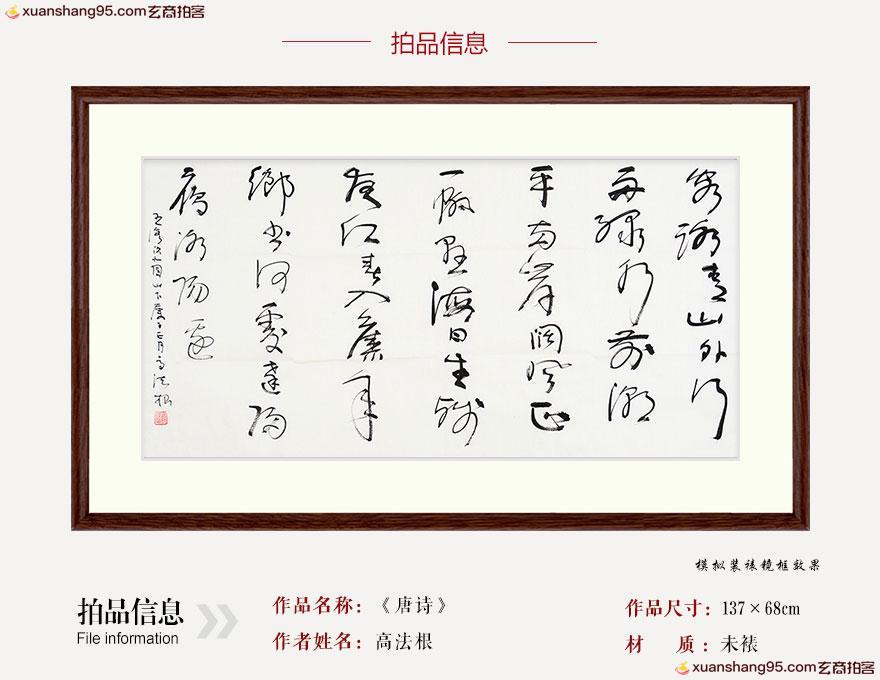 xuanshang95.com玄商拍客
拍品信息
客路青山外行
舟綠水前潮
平兩岸闊風正
一帆懸海日生殘
夜江春入舊年
鄉书何處達歸
雁洛陽邊
王灣次北固山下庚子正月高法根
模拟装裱镜框效果
拍品信息
File information
作品名称：《唐诗》
作者姓名：高法根
作品尺寸：137×68cm
材 质：未裱
xuanshang95.com玄商拍客